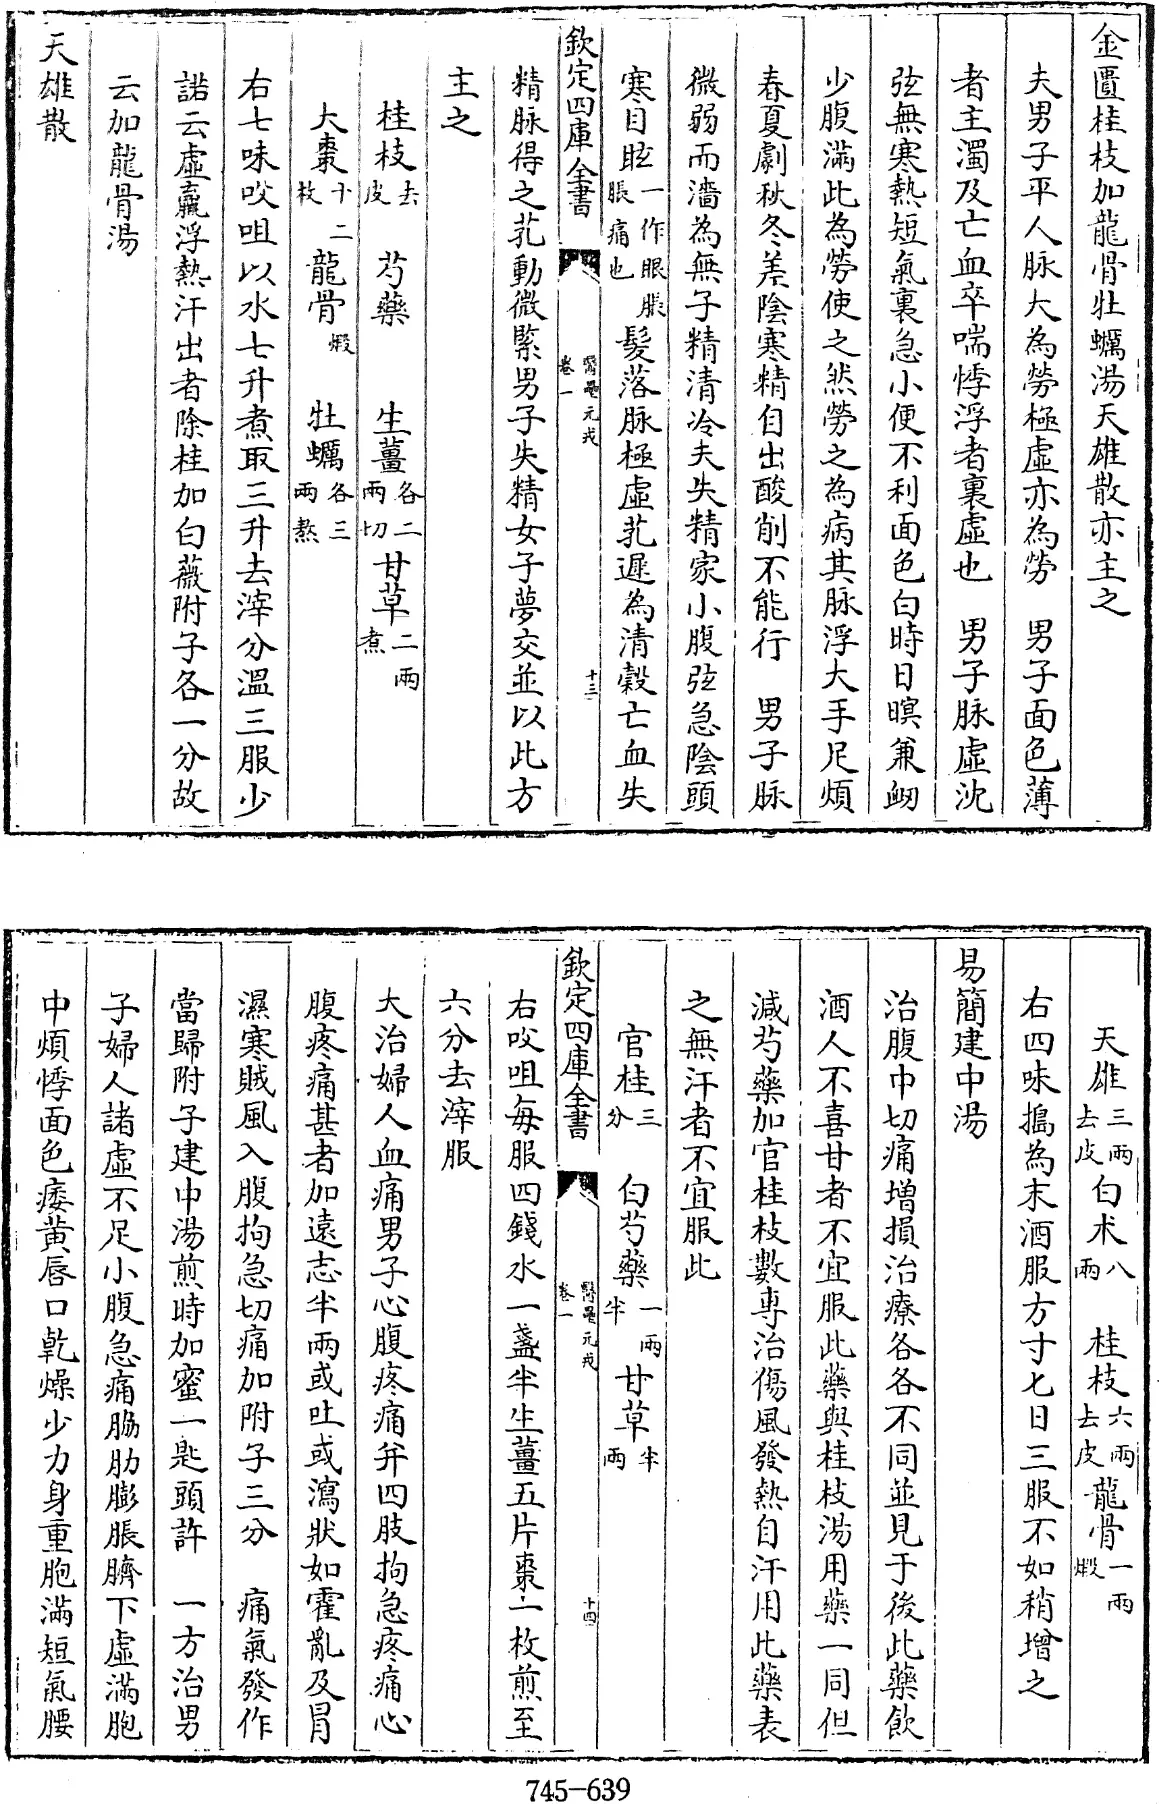 金匱桂枝加龍骨牡蠣湯天雄散亦主之
夫男子平人脉大為勞極虛亦為勞　男子面色薄
者主濁及亡血卒喘悸浮者裏虛也　男子脉虛沈
弦無寒熱短氣裏急小便不利面色白時目瞑兼衂
少腹滿此為勞使之然勞之為病其脉浮大手足煩
春夏劇秋冬差陰寒精自出酸削不能行　男子脉
微弱而濇為無子精清冷夫失精家小腹弦急陰頭
寒目眩一作眼脹脹痛也髮落脉極虛芤遲為清穀亡血失
欽定四庫全書　醫壘元戎卷一　十三
精脉得之芤動微緊男子失精女子夢交並以此方
主之
桂枝去皮　芍藥　生薑各二兩切甘草二兩煮
大棗十二枚　龍骨煅　牡蠣各三兩熬
右七味㕮咀以水七升煮取三升去滓分溫三服少
諾云虛羸浮熱汗出者除桂加白薇附子各一分故
云加龍骨湯
天雄散
天雄三兩去皮白术八兩　桂枝六兩去皮龍骨一兩煅
右四味搗為末酒服方寸匕日三服不如稍增之
易簡建中湯
治腹中切痛增損治療各各不同並見于後此藥飲
酒人不喜甘者不宜服此藥與桂枝湯用藥一同但
減芍藥加官桂枝數專治傷風發熱自汗用此藥表
之無汗者不宜服此
官桂三分　白芍藥一兩半　甘草半兩
欽定四庫全書　醫壘元戎卷一　十四
右㕮咀每服四錢水一盞半生薑五片棗二枚煎至
六分去滓服
大治婦人血痛男子心腹疼痛并四肢拘急疼痛心
腹疼痛甚者加遠志半兩或吐或瀉狀如霍亂及冒
濕寒賊風入腹拘急切痛加附子三分　痛氣發作
當歸附子建中湯煎時加蜜一匙頭許　一方治男
子婦人諸虛不足小腹急痛脇肋膨脹臍下虛滿胞
中煩悸面色痿黄唇口乾燥少力身重胞滿短氣腰
745-639